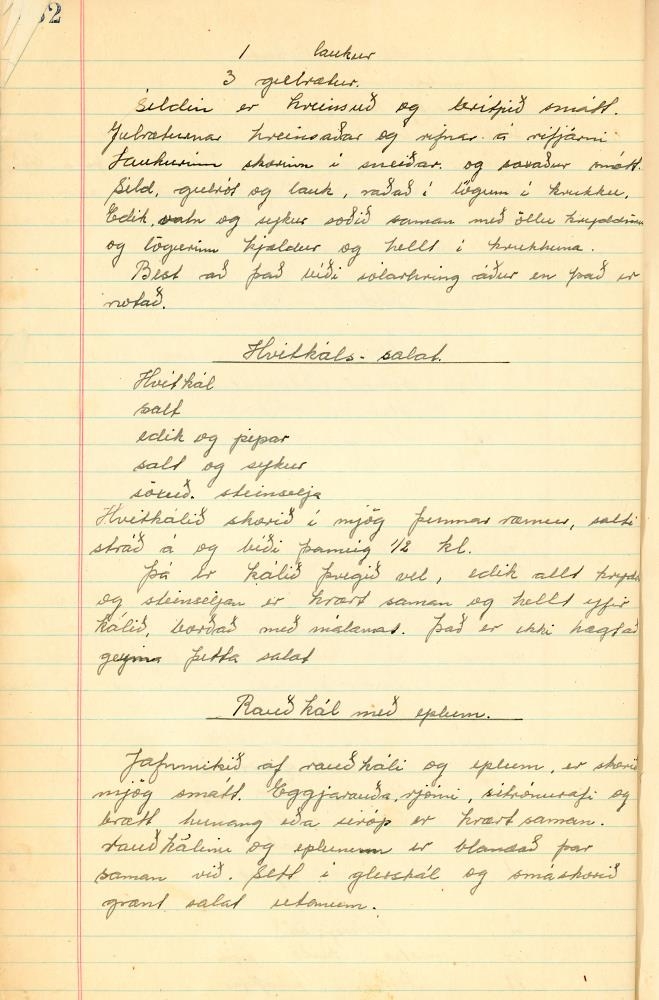 32
1 laukur
3 gulrætur.
Síldin er hreinsuð og britjið smátt.
Gulræturnar hreinsaðar og rifnar á rifjárni
Laukurinn skorinn í sneiðar og saxaður smátt.
Síld, gulrót og lauk, raðað í lögum í krukku.
Edik, vatn og sykur soðið saman með öllu kryddinu
og lögurinn kjældur og hellt í krukkuna.
Best að það bíði sólarhring áður en það er
notað.
Hvítkáls-salat.
Hvítkál
salt
edik og pipar
salt og sykur
söxuð. steinselja
Hvítkálið skorið í mjög þunnar ræmur, salti
stráð á og bíði þannig 1/2 kl.
Þá er kálið þvegið vel, edik allt krydd
og steinseljan er hrært saman og hellt yfir
kálið, borðað með málamat. Það er ekki hægt að
geyma þetta salat
Rauðkál með eplum.
Jafnmikið af rauðkáli og eplum, er skorið
mjög smátt. Eggjarauða, rjómi, sítrónusafi og
brætt hunang eða síróp er hrært saman.
rauðkálinu og eplunum er blandað þar
saman við. Sett í glerskál og smáskorið
grænt salat utanum.